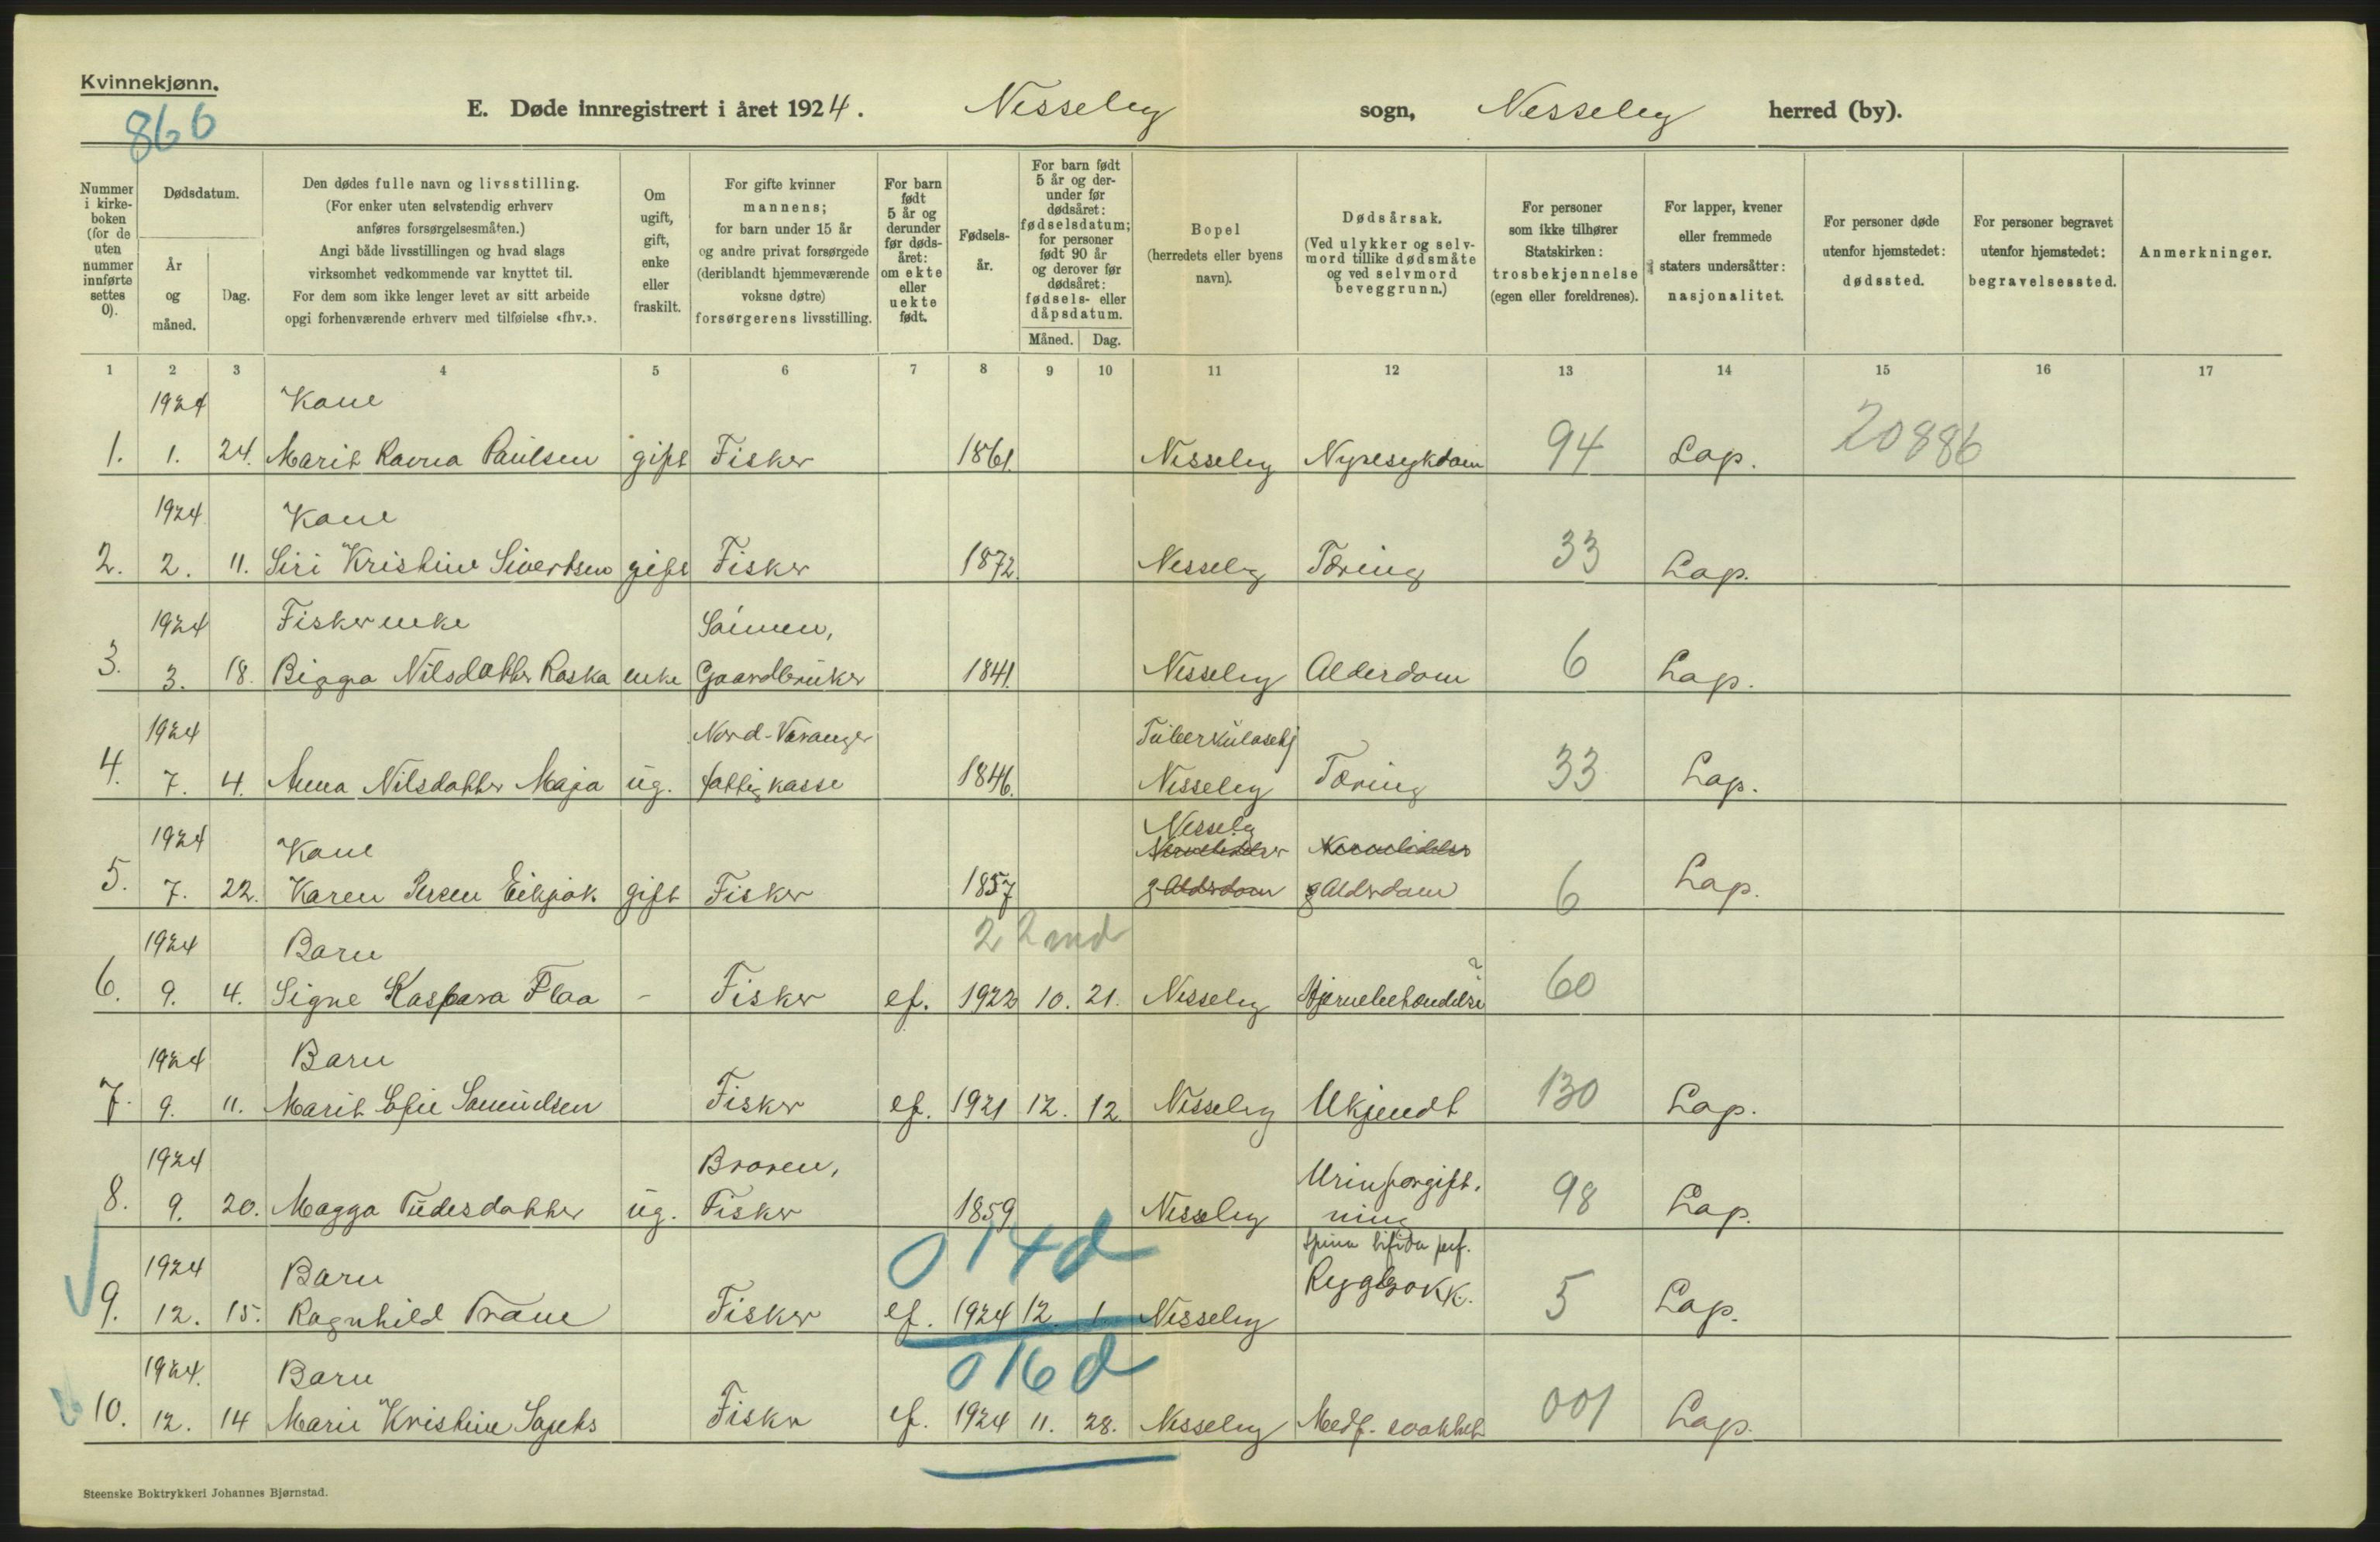 Kvinnekjønn.
866
E. Døde innregistrert i året 1924. Nesseby sogn, Nesseby herred (by).
Nummer i kirke-boken (for de uten nummer innførte settes 0).
Dødsdatum.
År og måned.
Dag.
Den dødes fulle navn og livsstilling.
(For enker uten selvstendig erhverv
anføres forsørgelsesmåten.)
Angi både livsstillingen og hvad slags
virksomhet vedkommende var knyttet til.
For dem som ikke lenger levet av sitt arbeide
opgi forhenværende erhverv med tilføielse «fhv.».
Om ugift, gift, enke eller fraskilt.
For gifte kvinner
mannens;
for barn under 15 år
og andre privat forsørgede
(deriblandt hjemmeværende
voksne døtre)
forsørgerens livsstilling.
For barn født 5 år og derunder før døds-året: om ekte eller uekte født.
Fødsels-år.
For barn født 5 år og der-under før dødsåret: fødselsdatum; for personer født 90 år og derover før dødsåret: fødsels- eller dåpsdatum.
Måned. Dag.
Bopel
(herredets eller byens
navn).
Dødsårsak.
(Ved ulykker og selv-
mord tillike dødsmåte
og ved selvmord
beveggrunn.)
For personer
som ikke tilhører
Statskirken:
trosbekjennelse
(egen eller foreldrenes).
For lapper, kvener
eller fremmede
staters undersåtter:
nasjonalitet.
For personer døde
utenfor hjemstedet:
dødssted.
For personer begravet
utenfor hjemstedet:
begravelsessted.
Anmerkninger.
1 2 3 4 5 6 7 8 9 10 11 12 13 14 15 16 17
1924 Kone
1. 1. 24. Marit Ravna Paulsen gift Fisker 1861. Nesseby Nyresykdom 94 Lap. 20886
1924 Kone
2. 2. 11. Siri Kristine Sivertsen gift Fisker 1872. Nesseby Tæring 33 Lap.
1924 Fiskerenke Sønnen,
3. 3. 18. Bigga Nilsdatter Raska enke Gaardbruker 1841. Nesseby Alderdom 6 Lap.
1924 Nord-Varanger Tuberkulosehj
4. 7. 4. Anna Nilsdatter Maja ug. fattigkasse 1846. Nesseby Tæring 33 Lap.
1924 Kone Nesseby
5. 7. 22. Karen Persen gift Fisker 1857 g Alderdom g Alderdom 6 Lap.
1924 Barn 2 2 md
6. 9. 4. Signe Kaspara Flaa - Fisker ef. 1922 10. 21. Nesseby Hjernebetændelse ? 60
1924 Barn
7. 9. 11. Marit Samuelsen Fisker ef. 1921 12. 12. Nesseby Ukjendt 130 Lap.
1924 Broren, Urinforgift.
8. 9. 20. Magga Tudesdatter ug. Fisker 1859 Nesseby ning 98 Lap.
014d
1924 Barn Spina bifida perf.
9. 12. 15. Ragnhild Trane Fisker ef. 1924 12. 1. Nesseby Rygbrokk. 5 Lap.
016d
1924. Barn
10. 12. 14 Marie Kristine Fisker ef. 1924 11. 28. Nesseby Medf. svakhet 001 Lap.
Steenske Boktrykkeri Johannes Bjørnstad.